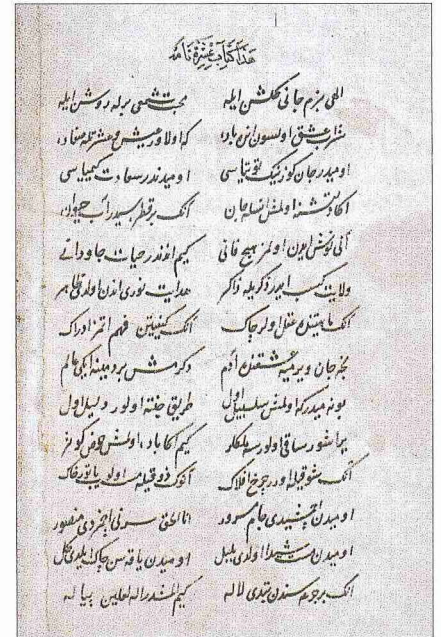 هذا كتاب عشرت نامه
الهی بزم جانی گلشن ایله محبت شمعی برله روشن ایله
شراب عشق اولسون انده باده که اولا عیش و عشرتله
اومیدر جان کوزینک توتیاسی اومیدندر سعادت کیمیاسی
اکا تشنه اولمش انسله جان انک بر قطره آب حیوان
آنی نوش ایدن اولمز هیچ فانی کیم اندندر حیات جاودانی
ولایت کسب ایدر ذکریله ذاکر هدایت نوری اندن اولدی ظاهر
انک عقل اولر چاک انک کیفیتن فهم اتمز ادراک
نجه جان ویرمیه عشقنده آدم دکرمش بر دمینه ایکی عالم
بو نه میدر که اولمش سلسبیل اول طریق جنته اولور دلیل اول
پر اشور ساقی اولورسه ملکلر کیم اکا باده اولمش حوض کوثر
انک شوقیله اودر چرخ افلاک انوک ذوقیله مست اولوب یاتور خاک
اومیدن ایچدی جام سرور انا الحق سرنی ایچردی منصور
اومیدن مست شیدا اولدی بلبل اومیدن یاقه سن چاک ایلدی گل
انک بر جرعه سندن بتدی لاله کیم المندر اله لعلین پیاله